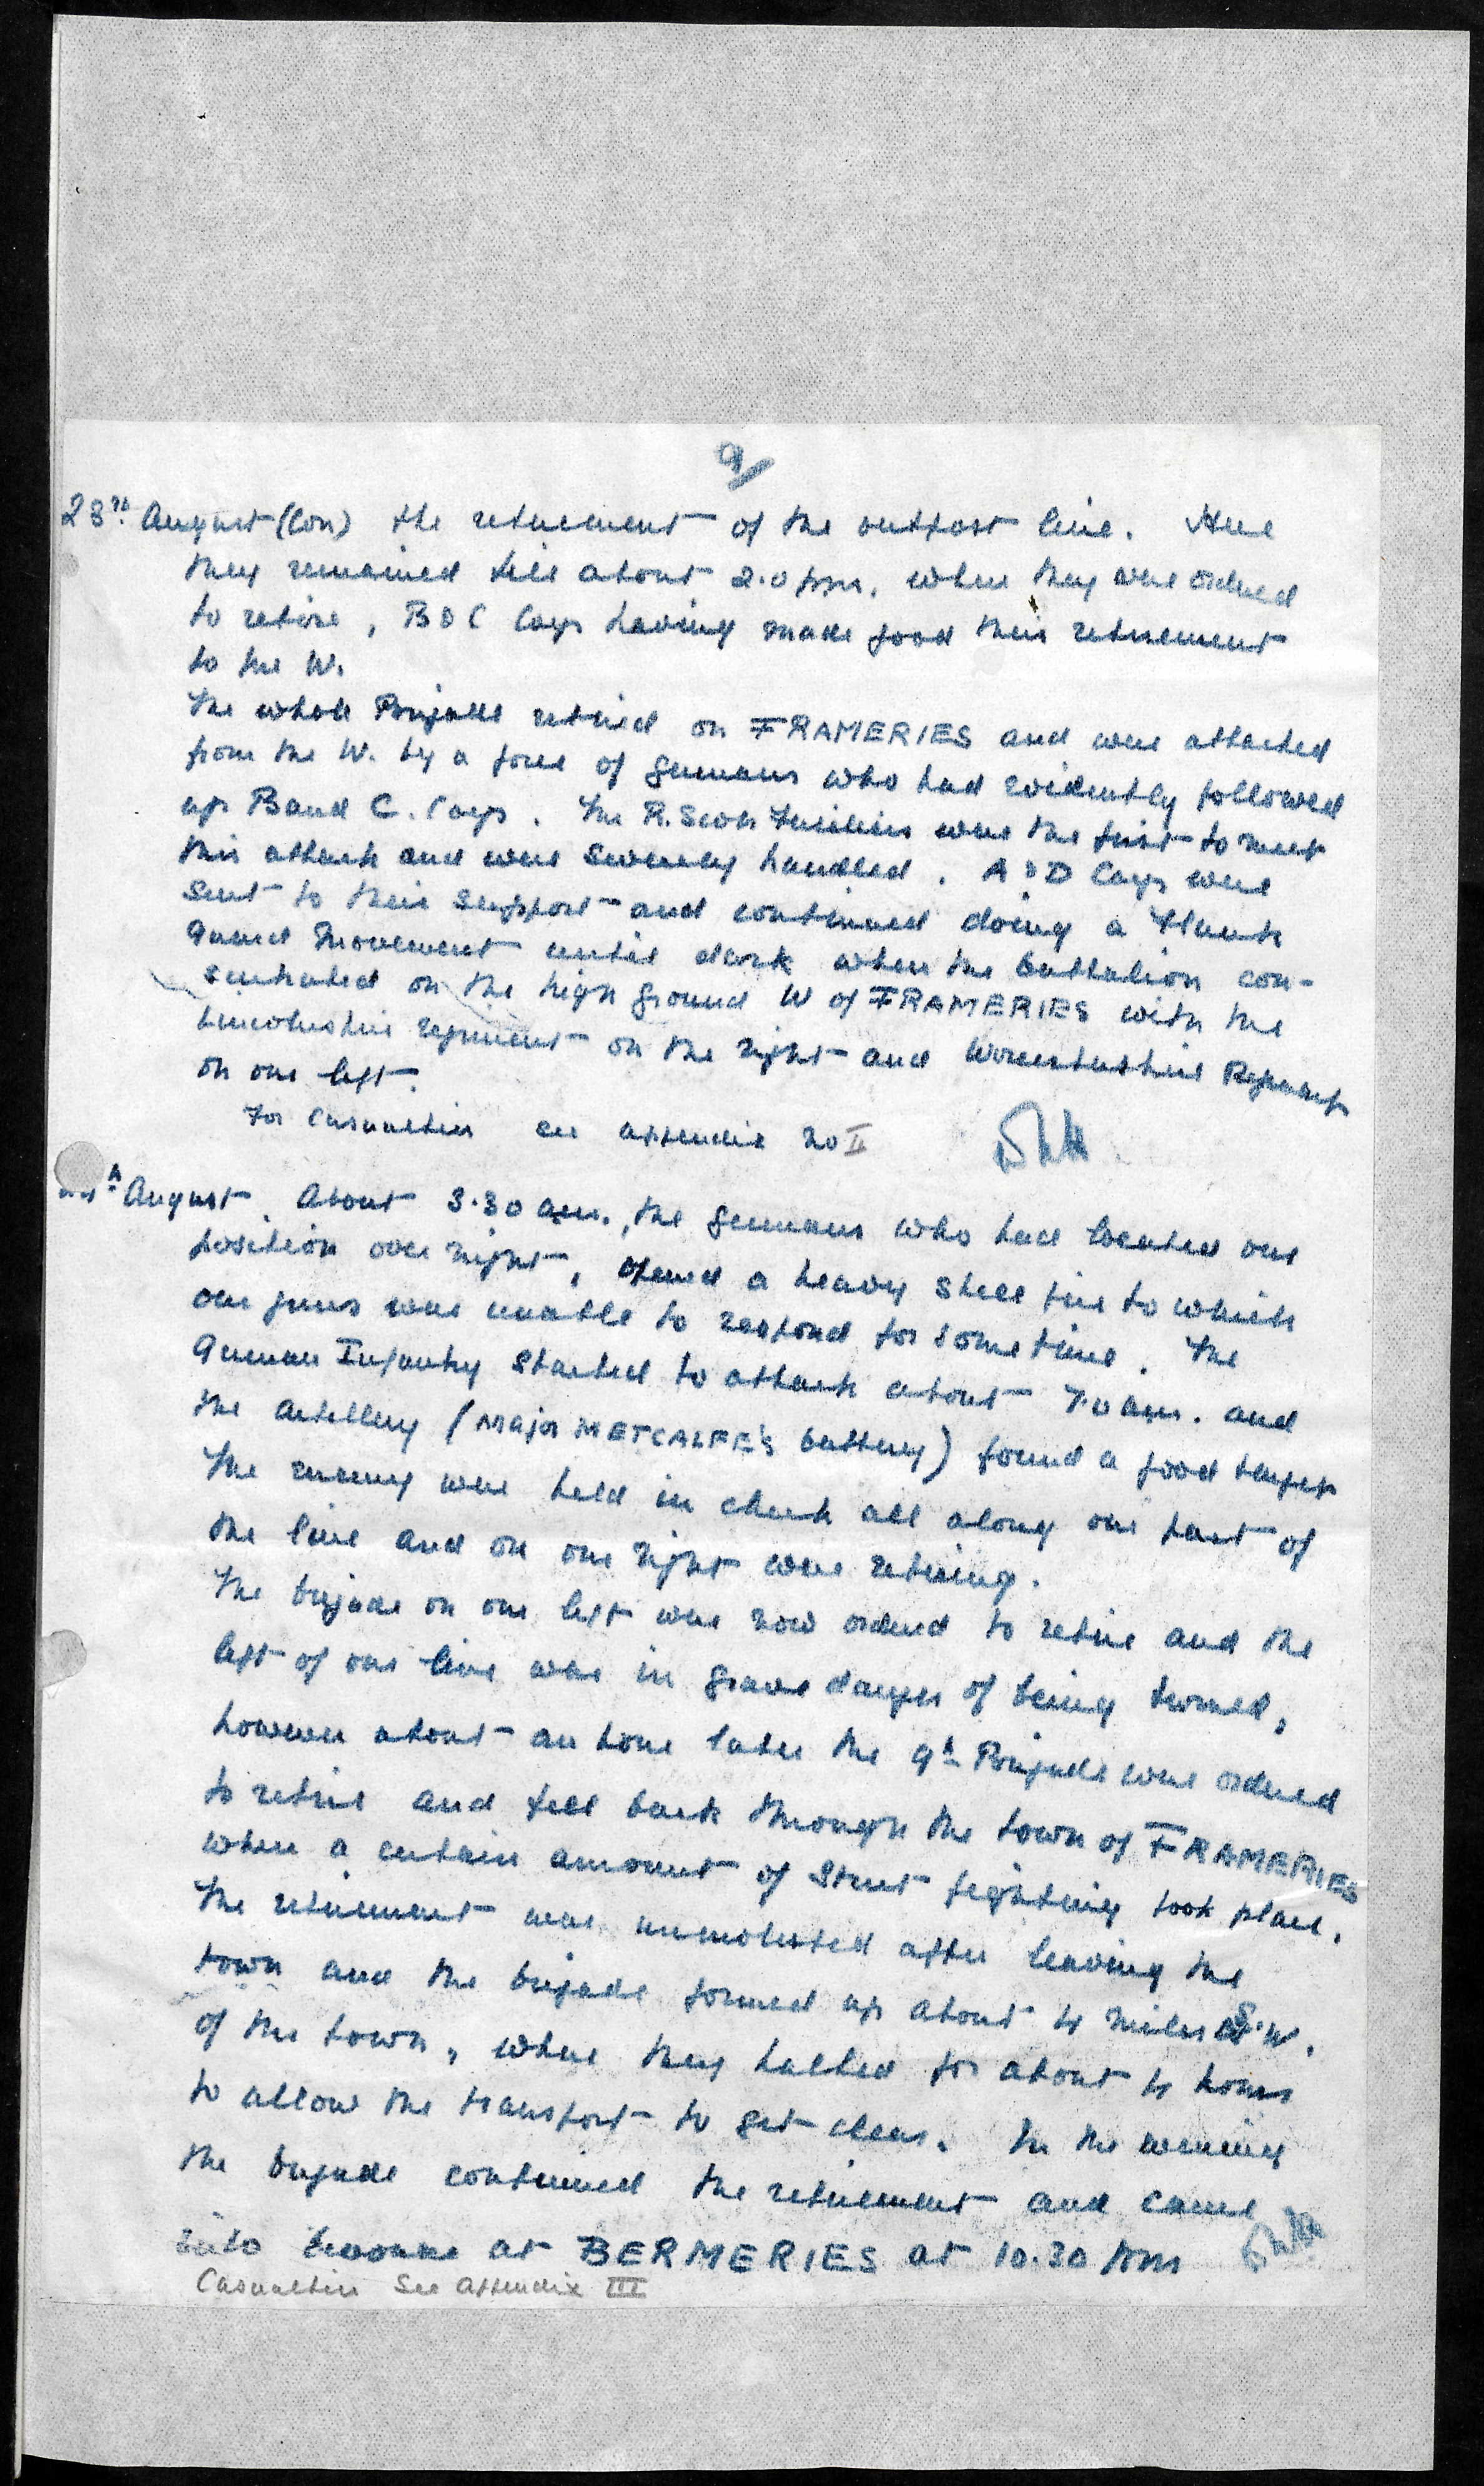 9/
23rd. August (Con) the retirement of the outpost line. Here
they remained till about 2.0 pm. when they were ordered
to retire, B & C Coys having made good their retirement
to the W.
The whole Brigade retired on FRAMERIES and were attacked
from the W. by a force of Germans who had evidently followed
up B and C. Coys. The R. Scots Fusiliers were the first to meet
this attack and were severely handled. A & D Coys were
sent to their support and continued doing a flank
guard movement until dark when the battalion con-
sentrated on the high ground W of FRAMERIES with the
Lincolnshire regiment on the right and Worcestershire Regiment
on our left.
For Casualties see appendix no II
th August. About 3.30 am., the Germans who had located our
position over night, opened a heavy shell fire to which
our guns were unable to respond for some time. The
German Infantry started to attack about 7.0 am. and
the artillery (Major METCALFE'S battery) found a good target
The enemy were held in check all along our part of
the line and on our right were retiring.
The brigade on our left were now ordered to retire and the
left of our line was in grave danger of being turned,
however about an hour later the 9th Brigade were ordered
to retire and fell back through the town of FRAMERIES
when a certain amount of Street fighting took place.
The retirement was unmolested after leaving the
town and the brigade formed up about 4 miles S.W.
of the town, where they halted for about 4 hours
to allow the transport to get clear. In the evening
the brigade continued the retirement and came
into bivouac at BERMERIES at 10.30 pm
Casualties See Appendix III